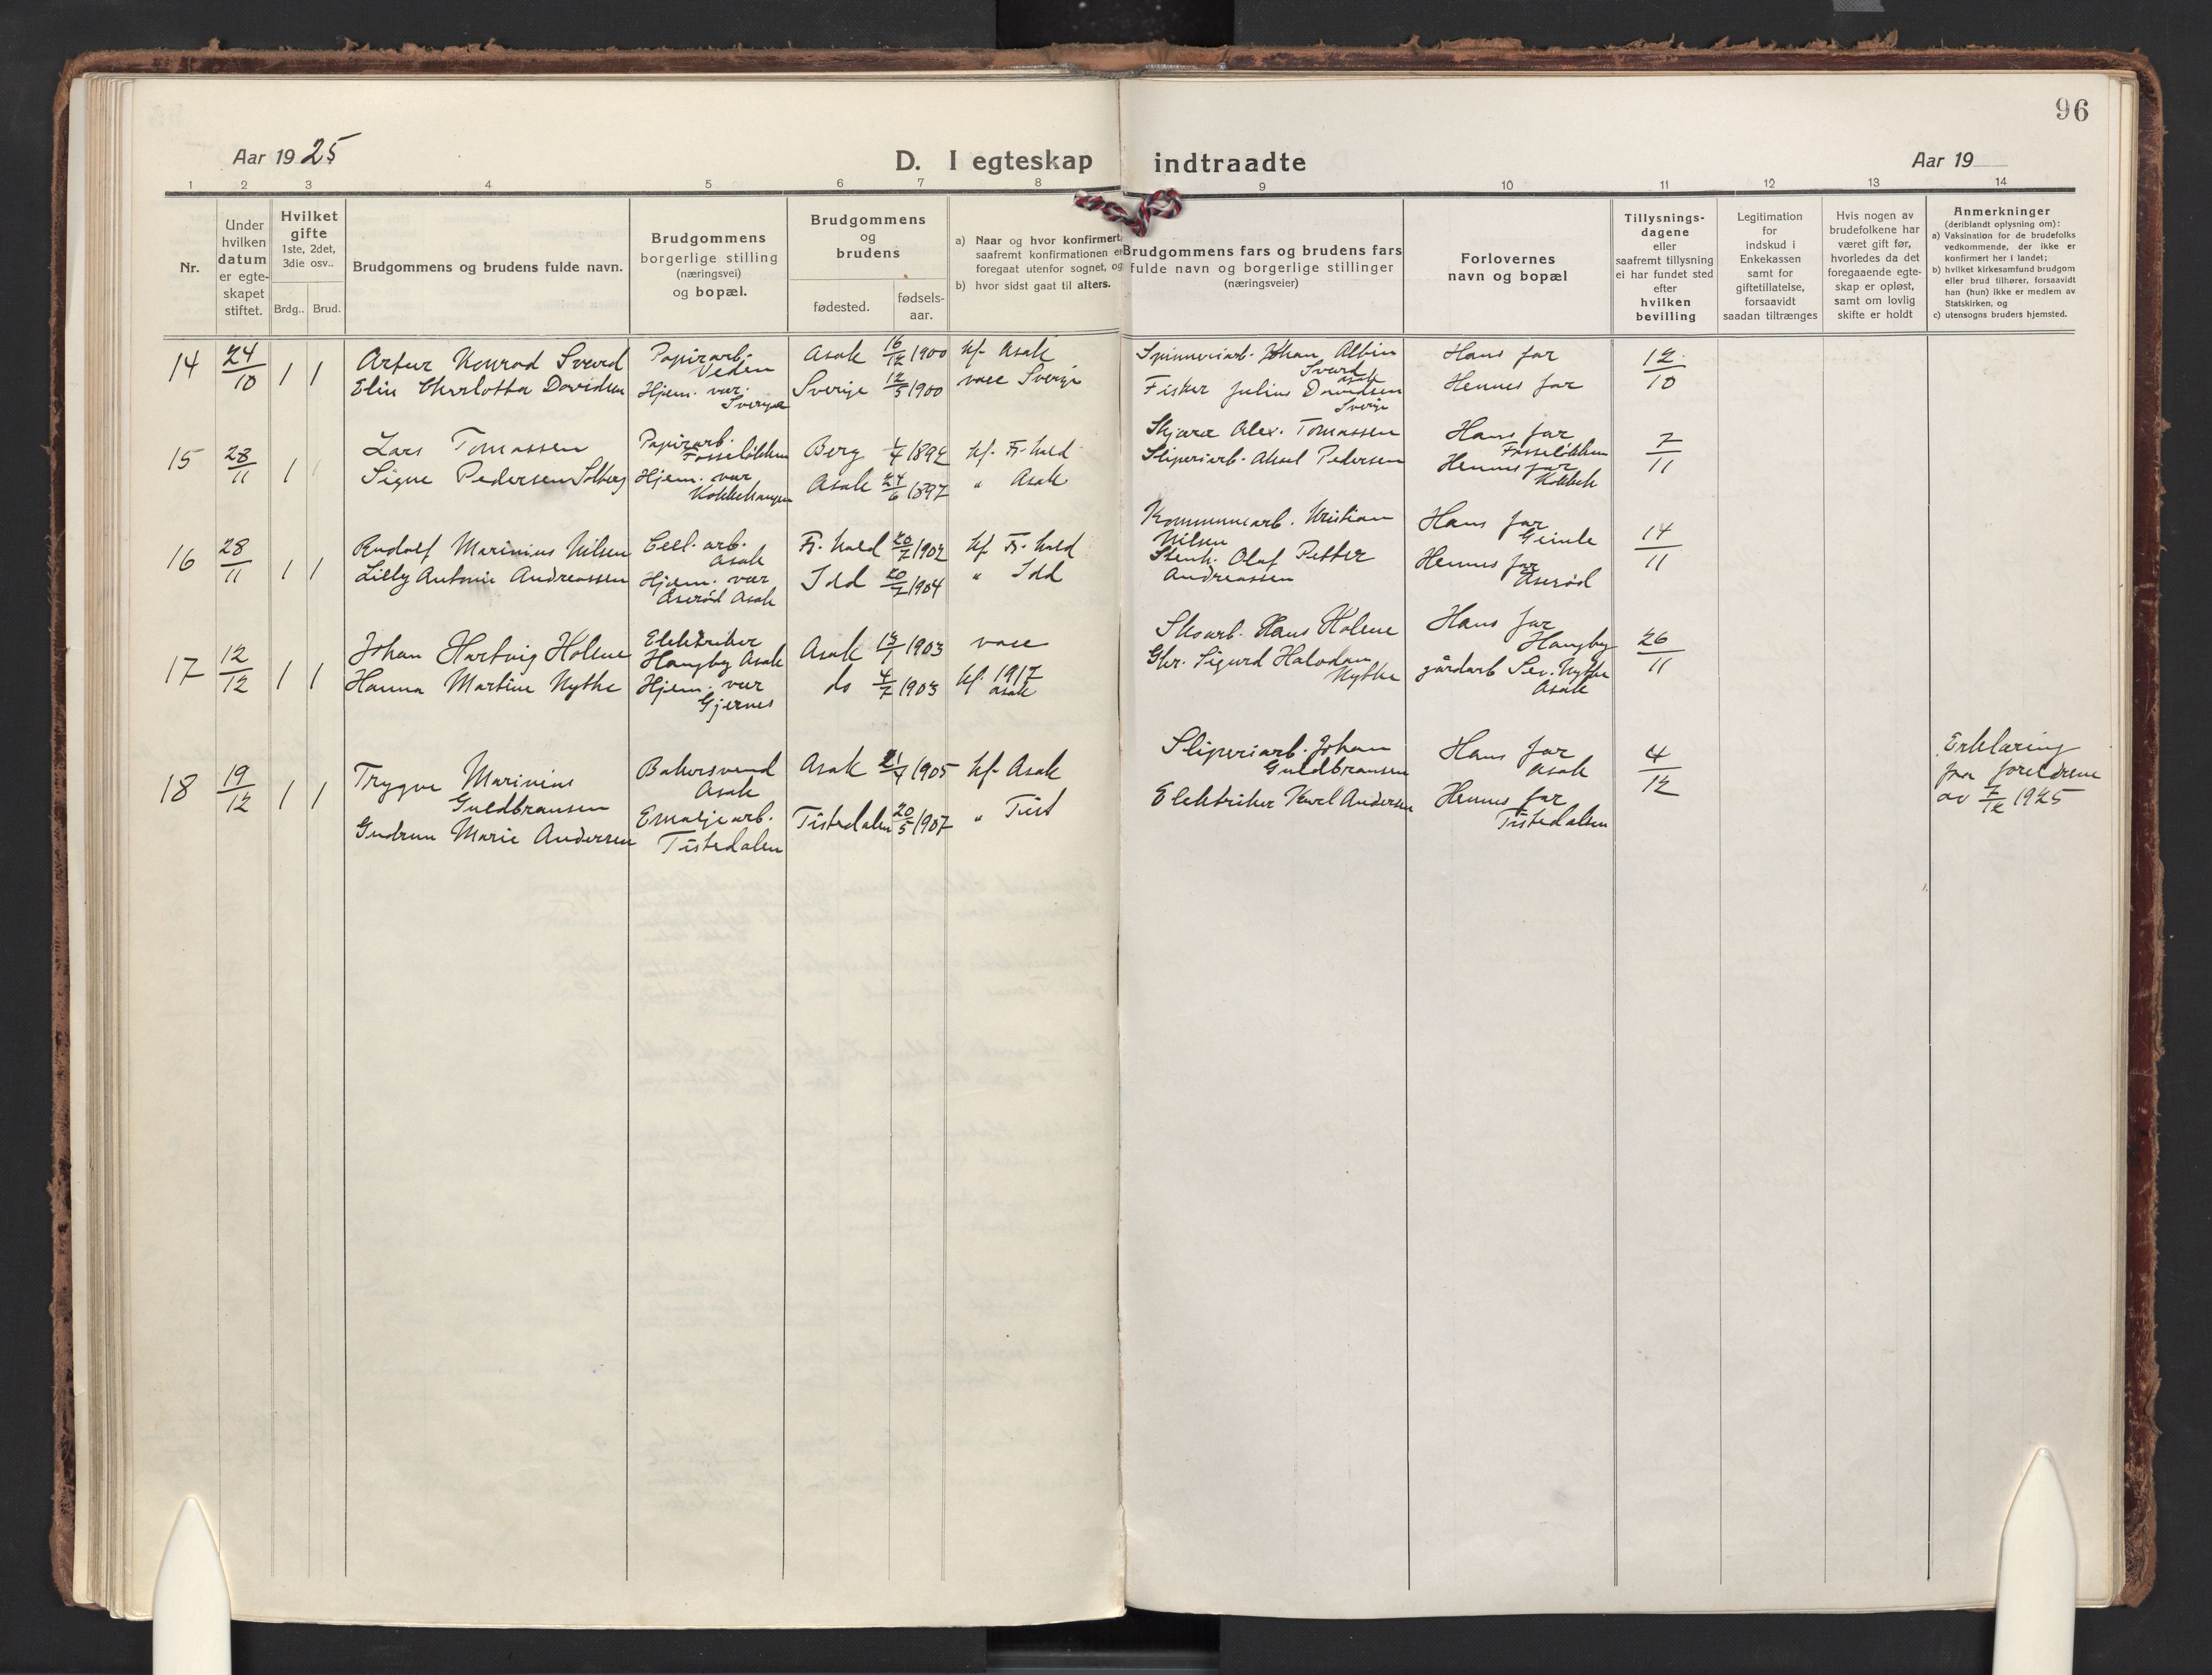 96
Aar 1925
D. I egteskap indtraadte
Aar 19
1 2 3 4 5 6 7 8 9 10 11 12 13 14
Nr.
Under
hvilken
datum
er egte-
skapet
stiftet.
Hvilket
gifte
1ste, 2det,
3die osv..
Brdg.. Brud.
Brudgommens og brudens fulde navn.
Brudgommens
borgerlige stilling
(næringsvei)
og bopæl.
Brudgommens
og
brudens
fødested.
fødsels-
aar.
a) Naar og hvor konfirmert,
saafremt konfirmationen er
foregaat utenfor sognet, og
b) hvor sidst gaat til alters.
Brudgommens fars og brudens fars
fulde navn og borgerlige stillinger
(næringsveier)
Forlovernes
navn og bopæl
Tillysnings-
dagene
eller
saafremt tillysning
ei har fundet sted
efter
hvilken
bevilling
Legitimation
for
indskud i
Enkekassen
samt for
giftetillatelse,
forsaavidt
saadan tiltrænges
Hvis nogen av
brudefolkene har
været gift før,
hvorledes da det
foregaaende egte-
skap er opløst,
samt om lovlig
skifte er holdt
Anmerkninger
(deriblandt oplysning om):
a) Vaksination for de brudefolks
vedkommende, der ikke er
konfirmert her i landet;
b) hvilket kirkesamfund brudgom
eller brud tilhører, forsaavidt
han (hun) ikke er medlem av
Statskirken, og
c) utensogns bruders hjemsted.
14 24/10 1 1
Artur Konrad Sverd
Elin Charlotta Davidsen
Papirarb.
Veden
Hjem. vær.
Sverge
Asak 16/12 1900
Sverige 12/5 1900
kf. Asak
vacc Sverige
Spinneriarb. Johan Albin
Sverd
Asak
Fisker Julius Davidsen
Sverige
Hans far
Hennes far
12/10
15 28/11 1 1
Lars Tomassen
Signe Pedersen Solberg
Papirarb.
Fosseløkken
Hjem. vær
Kokkehaugen
Berg 1/4 1892
Asak 24/6 1897
kf. Fr.hald
" Asak
Skjære Alex. Tomassen
Sliperiarb. Aksel Pedersen
Hans far
Fosseløkken
Hennes far
Kokkeh
7/11
16 28/11 1 1
Rudolf Marinius Nilsen
Lilly Antonie Andreassen
Cell. arb.
Asak
Hjem. vær
Aserød Asak
Fr. hald 20/7 1902
Idd 20/2 1904
kf Fr. hald
" Idd
Kommunearb. Kristian
Nilsen
Stenh. Olaf Petter
Andreassen
Hans far
Grimle
Hennes far
Aserød
14/11
17 12/12 1 1
Johan Hartvig Holene
Hanna Martine Nythe
Elektriker
Hangby Asak
Hjem. vær
Gjernes
Asak 13/1 1903
do 4/7 1903
vacc
kf. 1917
Asak
Skoarb. Hans Holene
Gbr. Sigurd Halvdan
Nythe
Hans far
Hangby
gårdarb Sev. Nythe
Asak
26/11
18 19/12 1 1
Trygve Marinius
Guldbransen
Gudrun Marie Andersen
Bakersvend
Asak
Emaljearb.
Tistedalen
Asak 21/7 1905
Tistedalen 20/5 1907
kf. Asak
" Tist
Sliperiarb. Johan
Guldbransen
Elektriker Karl Andersen
Hans far
Asak
Hennes far
Tistedalen
4/12
Erklæring
fra foreldrene
av 7/12 1925